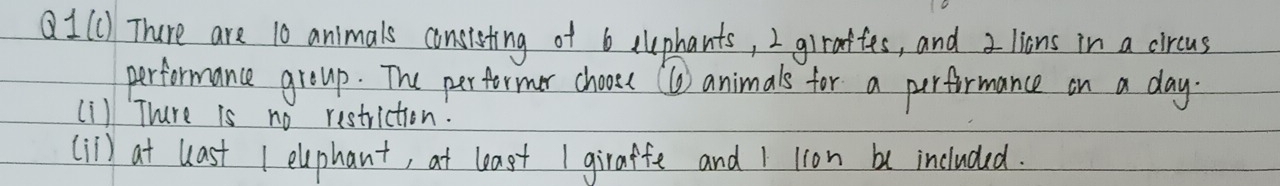 Q1(c) There are 10 animals consisting of 6 elephants, 2 giraffes, and 2 lions in a circus
performance group. The performer choose 6 animals for a performance on a day.
(i) There is no restriction.
(ii) at least 1 elephant, at least 1 giraffe and 1 lion be included.